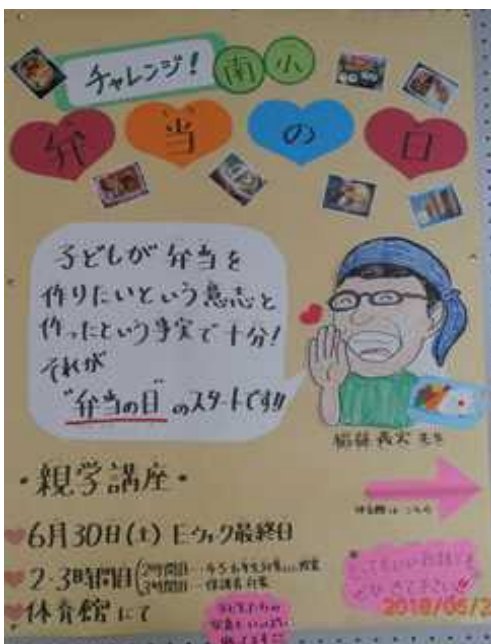 チャレンジ！
南小
弁当の日
子どもが弁当を
作りたいという意志と
作ったという事実で十分！
それが
"弁当の日"のスタートです!!
・親学講座・
6月30日(土) Eウィーク最終日
2・3時間目
2時間目
3時間目…保護者対象
体育館にて
体育館はこちら